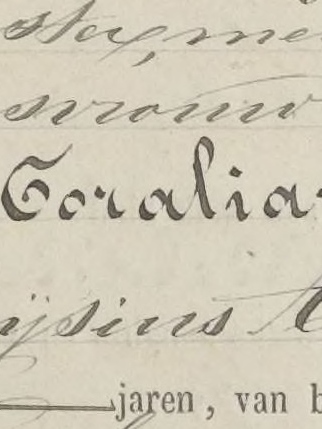 stax, me
svrouw
Coralia
ysius
jaren, van b